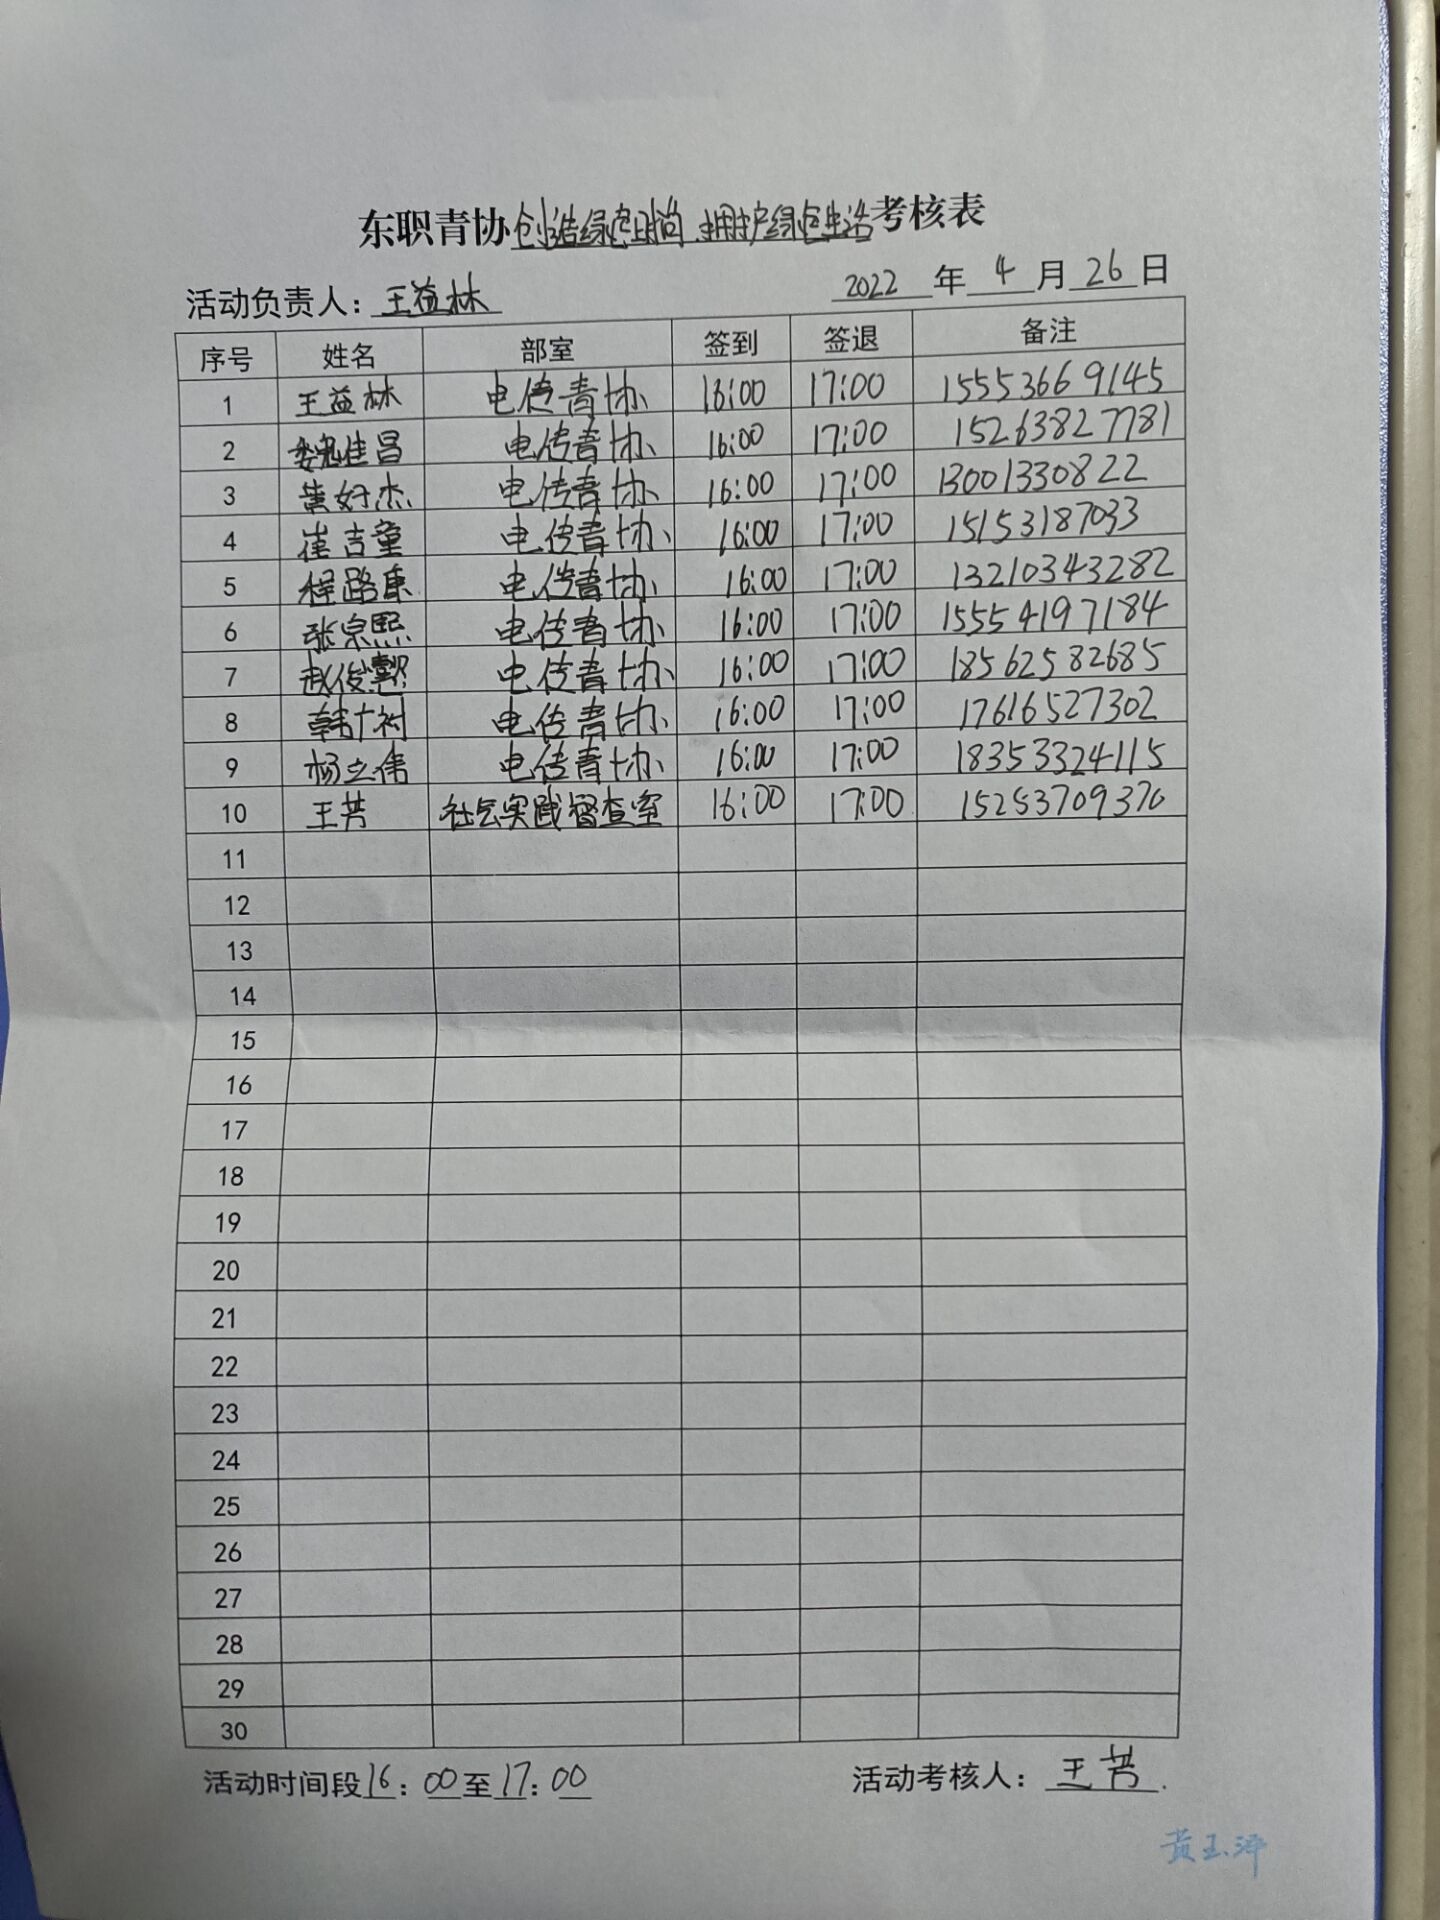 东职青协创造绿色时尚 拥护绿色生活考核表
活动负责人：王益林 2022年4月26日
序号 姓名 部室 签到 签退 备注
1 王益林 电传青协 16:00 17:00 15553669145
2 魏佳昌 电传青协 16:00 17:00 15263827781
3 黄好杰 电传青协 16:00 17:00 13001330822
4 崔吉童 电传青协 16:00 17:00 15153187033
5 程路康 电传青协 16:00 17:00 13210343282
6 张宗熙 电传青协 16:00 17:00 15554197184
7 赵俊懿 电传青协 16:00 17:00 18562582685
8 韩 电传青协 16:00 17:00 17616527302
9 杨立伟 电传青协 16:00 17:00 18353324115
10 王芳 社会实践督查室 16:00 17:00 15253709370
11
12
13
14
15
16
17
18
19
20
21
22
23
24
25
26
27
28
29
30
活动时间段16：00至17：00 活动考核人：王芳.
黄玉